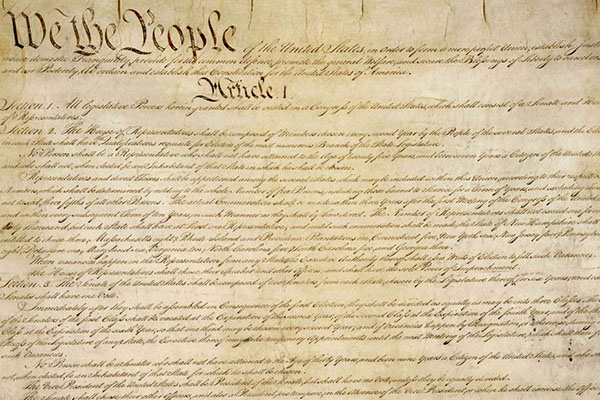 We the People of the United States, in Order to form a more perfect Union, establish
insure domestic Tranquility, provide for the common defence, promote the general Welfare, and secure the Blessings of Liberty to ourselves
and our Posterity, do ordain and establish this Constitution for the United States of America.
Article. I.
Section. 1. All legislative Powers herein granted shall be vested in a Congress of the United States, which shall consist of a Senate and House
of Representatives.
Section. 2. The House of Representatives shall be composed of Members chosen every second Year by the People of the several States, and the
in each State shall have Qualifications requisite for Electors of the most numerous Branch of the State Legislature.
No Person shall be a Representative who shall not have attained to the Age of twenty five Years, and been seven Years a Citizen of the United
and who shall not, when elected, be an Inhabitant of that State in which he shall be chosen.
Representatives and direct Taxes shall be apportioned among the several States which may be included within this Union, according to their respective
Numbers, which shall be determined by adding to the whole Number of free Persons, including those bound to Service for a Term of Years, and excluding
three fifths of all other Persons. The actual Enumeration shall be made within three Years after the first Meeting of the Congress of the United
and within every subsequent Term of ten Years, in such Manner as they shall by Law direct. The Number of Representatives shall not exceed one for
thirty Thousand, but each State shall have at Least one Representative; and until such enumeration shall be made, the State of New Hampshire shall
entitled to chuse three, Massachusetts eight, Rhode Island and Providence Plantations one, Connecticut five, New York six, New Jersey four, Pennsylvania
eight, Delaware one, Maryland six, Virginia ten, North Carolina five, South Carolina five, and Georgia three.
When vacancies happen in the Representation from any State, the Executive Authority thereof shall issue Writs of Election to fill such Vacancies.
The House of Representatives shall chuse their Speaker and other Officers; and shall have the sole Power of Impeachment.
Section. 3. The Senate of the United States shall be composed of two Senators from each State, chosen by the Legislature thereof, for six Years; and
Senator shall have one Vote.
Immediately after they shall be assembled in Consequence of the first Election, they shall be divided as equally as may be into three Classes.
shall be vacated at the Expiration of the second Year, of the second Class at the Expiration of the fourth Year, and of the third
Class at the Expiration of the sixth Year, so that one third may be chosen every second Year; and if Vacancies happen by Resignation, or otherwise,
Recess of the Legislature of any State, the Executive thereof may make temporary Appointments until the next Meeting of the Legislature, which shall
such Vacancies.
No Person shall be a Senator who shall not have attained to the Age of thirty Years, and been nine Years a Citizen of the United States, and who
not, when elected, be an Inhabitant of that State for which he shall be chosen.
The Vice President of the United States shall be President of the Senate, but shall have no Vote, unless they be equally divided.
The Senate shall chuse their other Officers, and also a President pro tempore, in the Absence of the Vice President, or when he shall exercise the Office